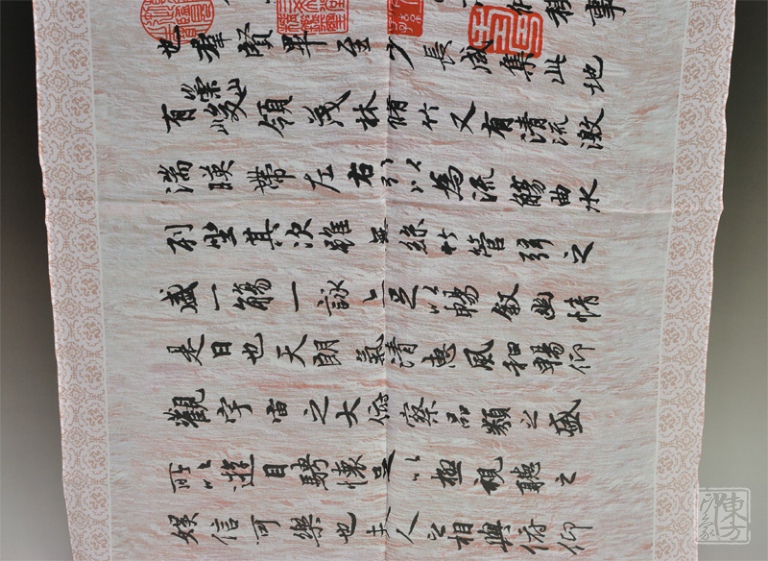 事
也羣賢畢至少長咸集此地
有崇山峻領茂林脩竹又有清流激
湍暎帶左右引以為流觴曲水
列坐其次雖無絲竹管弦之
盛一觴一詠亦足以暢敘幽情
是日也天朗氣清惠風和暢仰
觀宇宙之大俯察品類之盛
所以遊目騁懷足以極視聽之
娛信可樂也夫人之相與俯仰